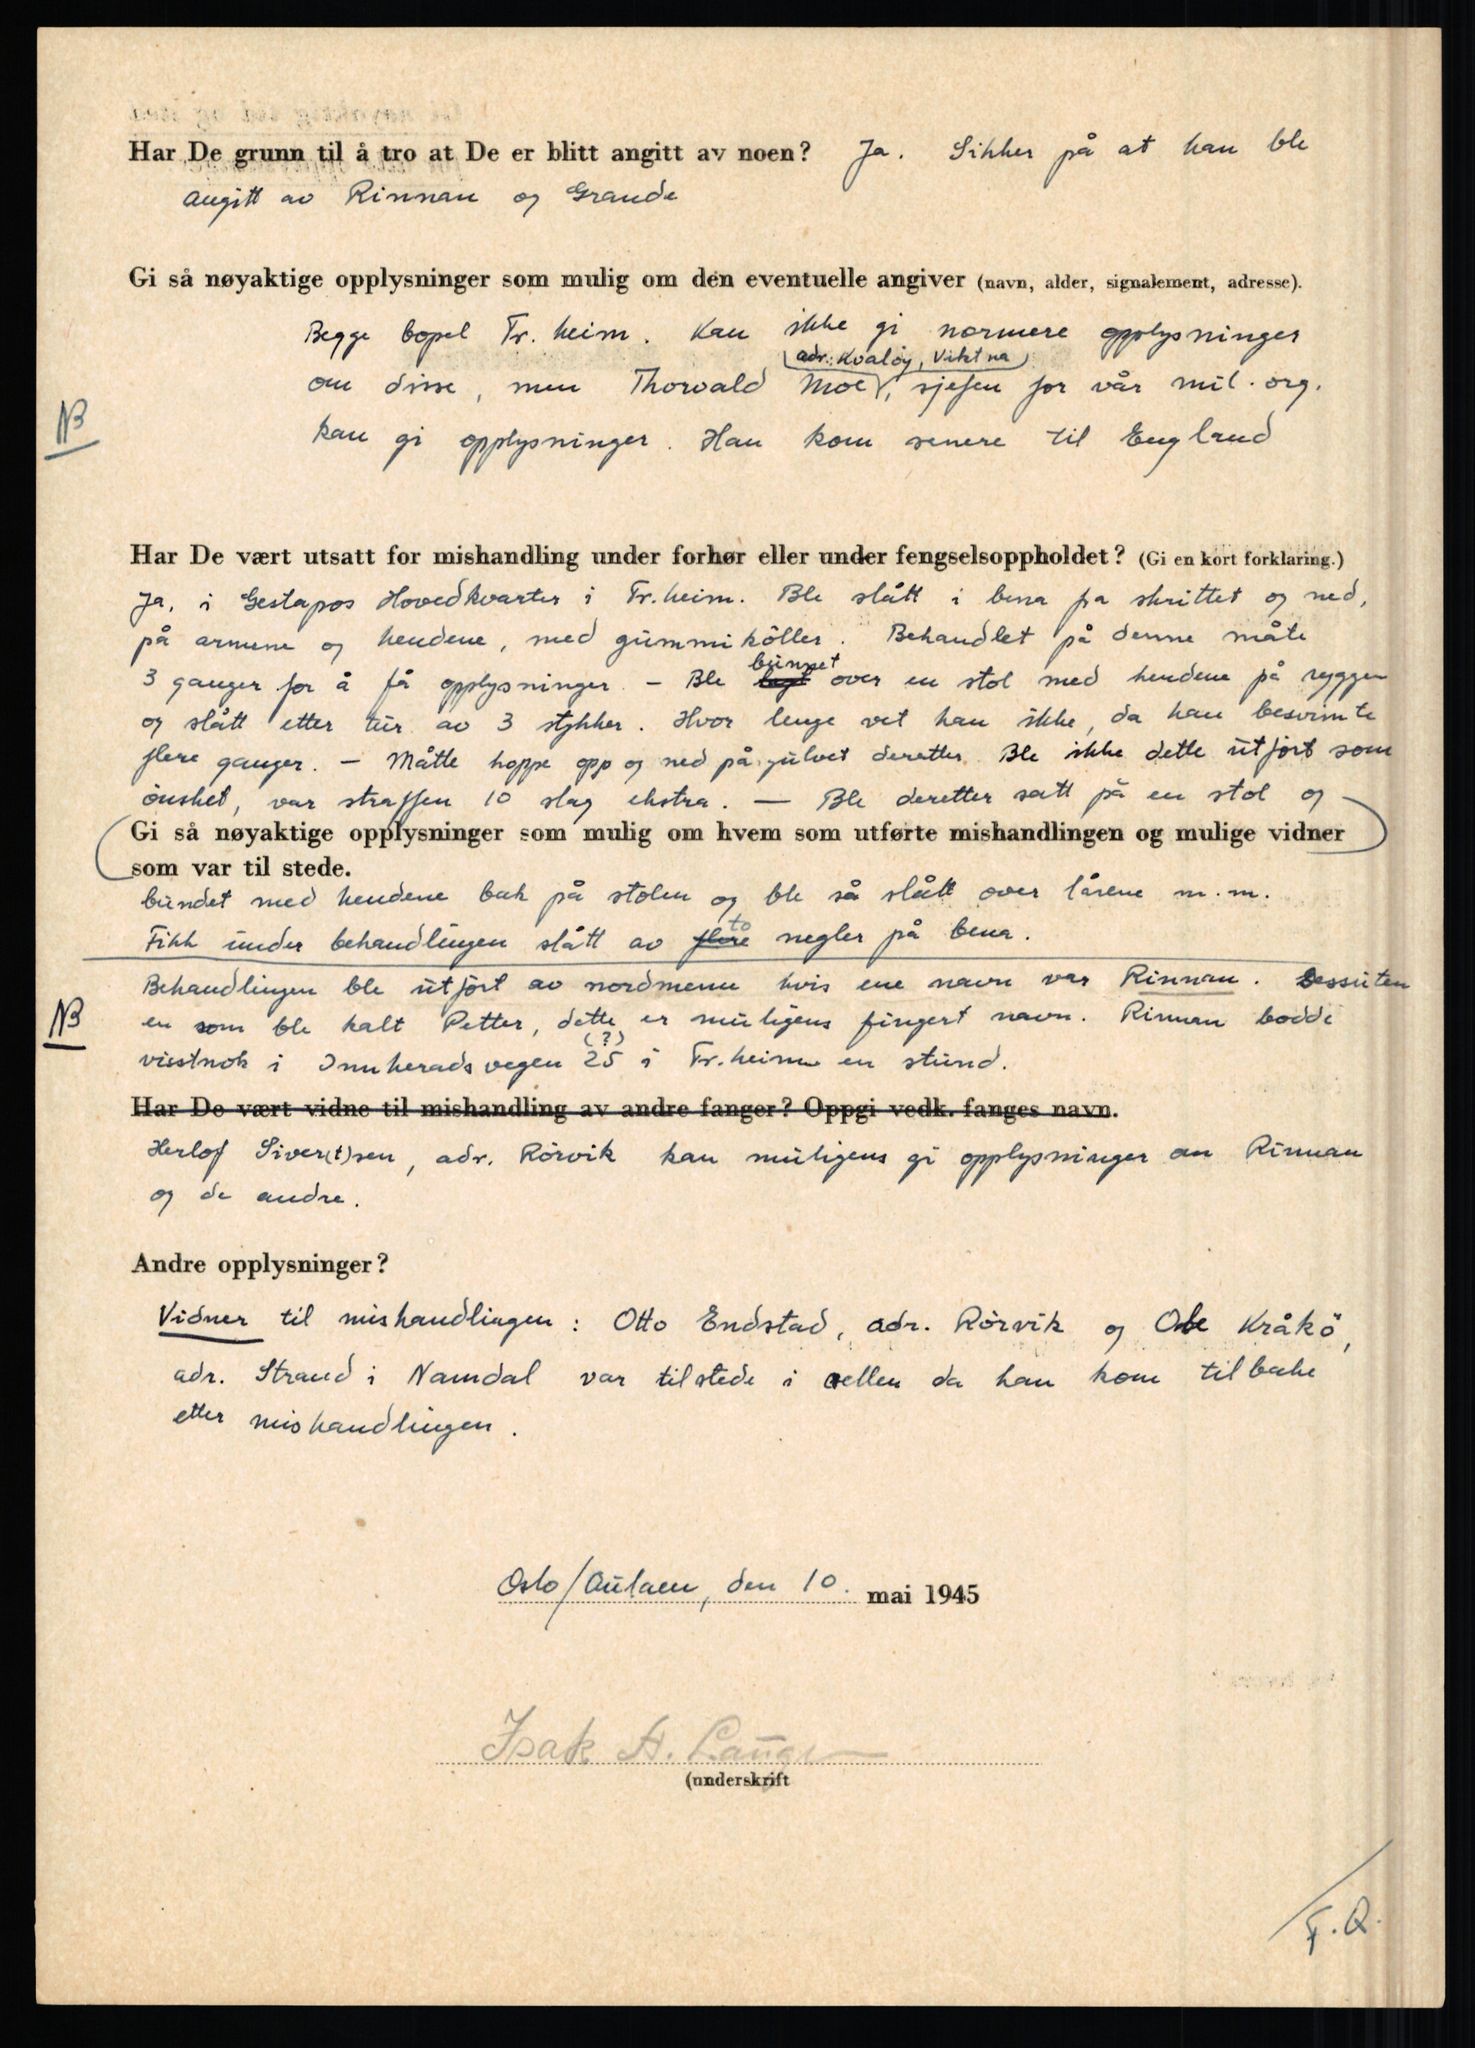 Har De grunn til å tro at De er blitt angitt av noen? Ja. Sikker på at han ble
angitt av Rinnan og Grande
Gi så nøyaktige opplysninger som mulig om den eventuelle angiver (navn, alder, signalement, adresse).
Begge bopel Tr.heim. Kan ikke gi nærmere opplysninger
adr.: Kvaløy, Vikna
om disse, men Thorvald Moe, sjefen for vår mil. org.
NB
kan gi opplysninger. Han kom senere til England
Har De vært utsatt for mishandling under forhør eller under fengselsoppholdet? (Gi en kort forklaring.)
Ja, i Gestapos Hovedkvarter i Tr.heim. Ble slått i bena fra skrittet og ned,
på armene og hendene, med gummikøller. Behandlet på denne måte
3 ganger for å få opplysninger – Ble bunnet over en stol med hendene på ryggen
og slått etter tur av 3 stykker. Hvor lenge vet han ikke, da han besvimte
flere ganger. – Måtte hoppe opp og ned på gulvet deretter. Ble ikke dette utført som
ønsket, var straffen 10 slag ekstra. – Ble deretter satt på en stol og
Gi så nøyaktige opplysninger som mulig om hvem som utførte mishandlingen og mulige vidner
som var til stede.
bundet med hendene bak på stolen og ble så slått over lårene m.m.
Fikk under behandlingen slått av flere to negler på bena.
Behandlingen ble utført av nordmenn hvis ene navn var Rinnan. Dessuten
NB
en som ble kalt Petter, dette er muligens fingert navn. Rinnan bodde
visstnok i Innheradsvegen 25 (?) i Tr.heim en stund.
Har De vært vidne til mishandling av andre fanger? Oppgi vedk. fanges navn.
Herlof Siver(t)sen, adr. Rörvik kan muligens gi opplysninger om Rinnan
og de andre.
Andre opplysninger?
Vidner til mishandlingen: Otto Endstad, adr. Rörvik og Ole Kråkö,
adr. Strand i Namdal var tilstede i cellen da han kom tilbake
etter mishandlingen.
Oslo/Aulaen, den 10. mai 1945
Isak A. Laugen
(underskrift
F.Q.